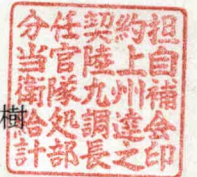 分任契約担
当官陸上自
衛隊九州補
給処調達会
計部長之印
樹